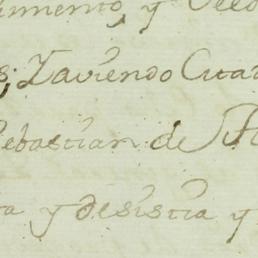 imento, y Velo
s; Zaviendo Cita
Sebastian de
ta y desistia y